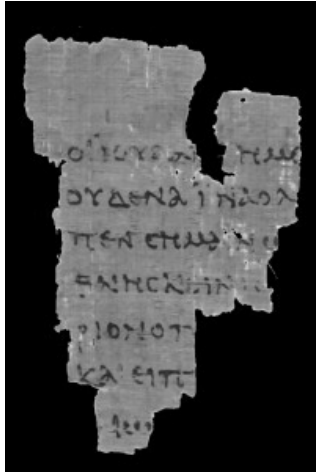 ΟΙ ΙΟΥΔΑΙ ΗΜΙ
ΟΥΔΕΝΑ ΙΝΑΟΛ
ΠΕΝ ΣΗΜΑΙΝΩ
ΘΝΗΣΚΕΙΝ
ΡΙΟΝ Ο Π
ΚΑΙ ΕΙΠ
ΑΙΩ